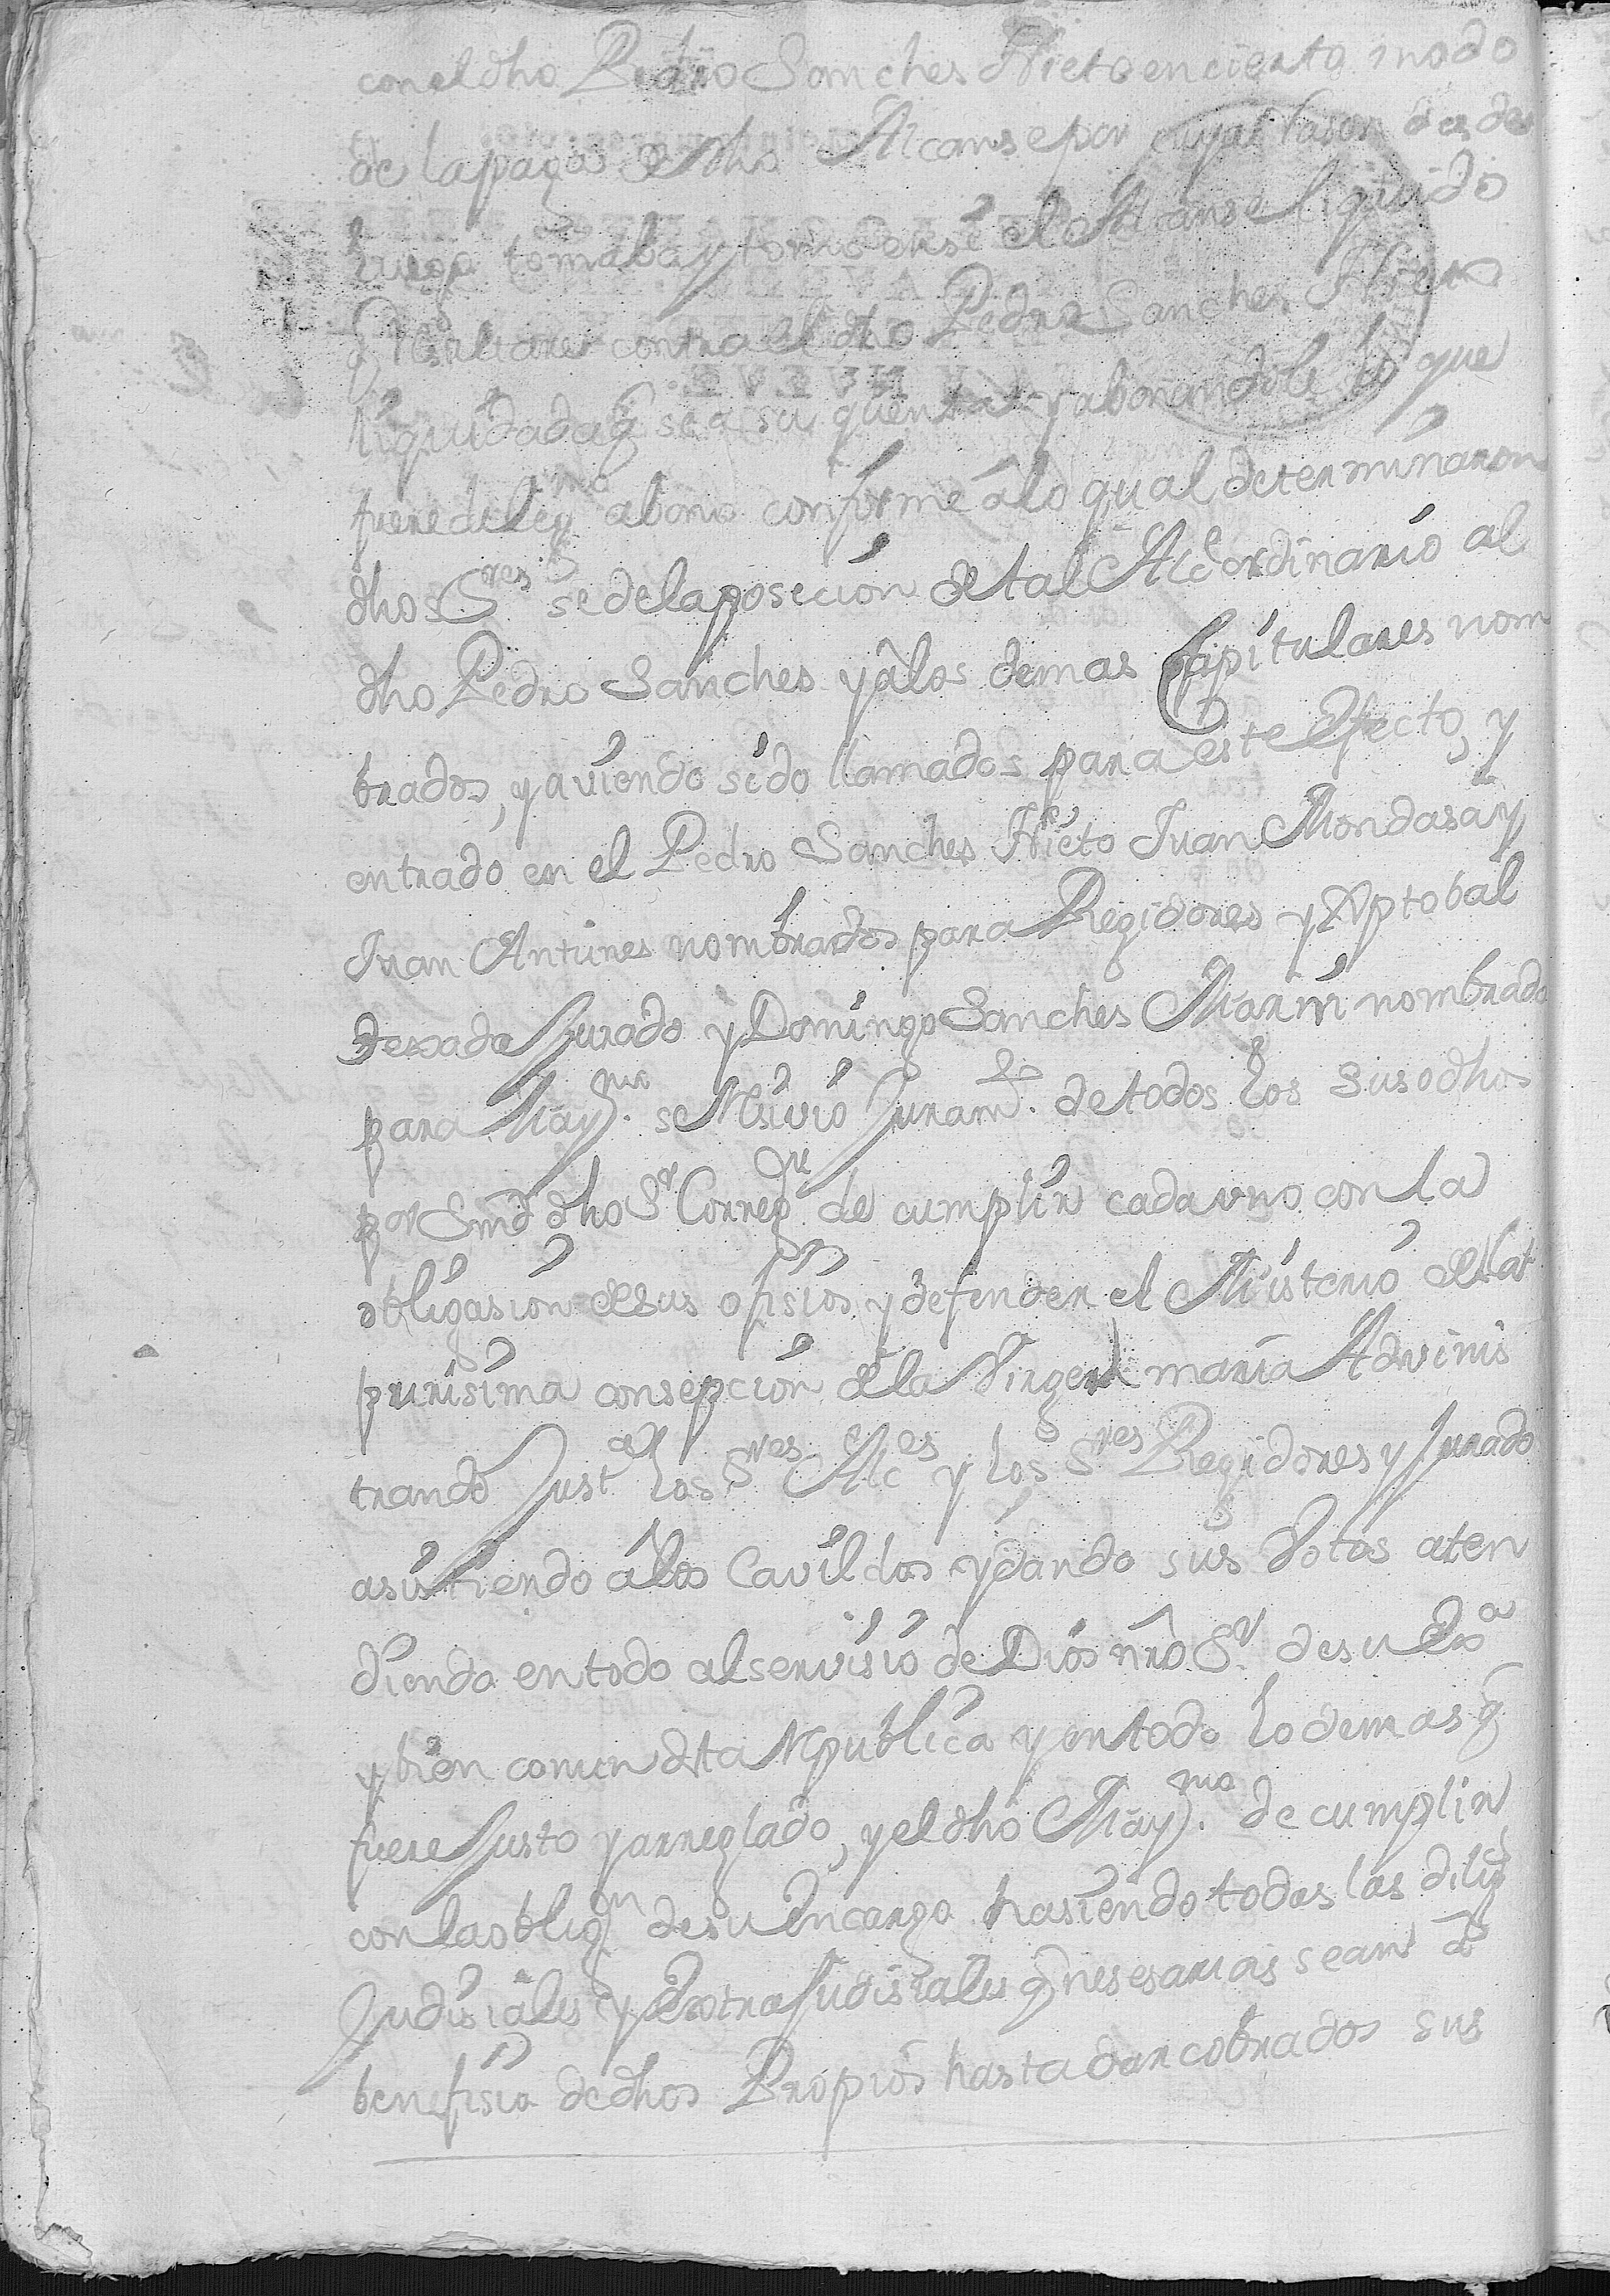 con el dho Pedro Sanches Nieto en cierto modo
de la paga de dho Alcanse por cuya rason desde
luego tomaba y tomo en si el Alcanse liquido
q̃ resultare contra el dho Pedro Sanches Nieto
liquidada q̃ sea su quenta y abonandole lo que
fuere de legmo abono conforme â lo qual determinaron
dhos Sres se de la posecion de tal Alce ordinario al
dho Pedro Sanches y â los demas Capitulares nom
brados, y aviendo sido llamados para este Efecto, y
entrado en el Pedro Sanches Nieto Juan Mondasa y
Juan Antunes nombrados para Regidores y Xptobal
Texada Jurado y Domingo Sanches Marin nombrado
para Maymo. se resivio Juramto. de todos los susodhos
por Emd dho Sr Corregor de cumplir cada uno con la
obligasion de sus ofisios y defender el Misterio de la
purisima consepcion de la Virgen maria Adminis
trando Justa los Sres Alces y los Sres Regidores y Jurado
asistiendo â los Cavildos y dando sus Votos aten
diendo en todo al servisio de Dios nro Sr. de su Exa
y bien comun dsta republica y en todo lo demas q̃
fuere Justo y arreglado, y el dho Maymo. de cumplir
con la obligon de su Encargo hasiendo todas las dilig
Judisiales y Extra Judisiales q̃ nesesarias sean â
benefisio de dhos Propios hasta dar cobrados sus